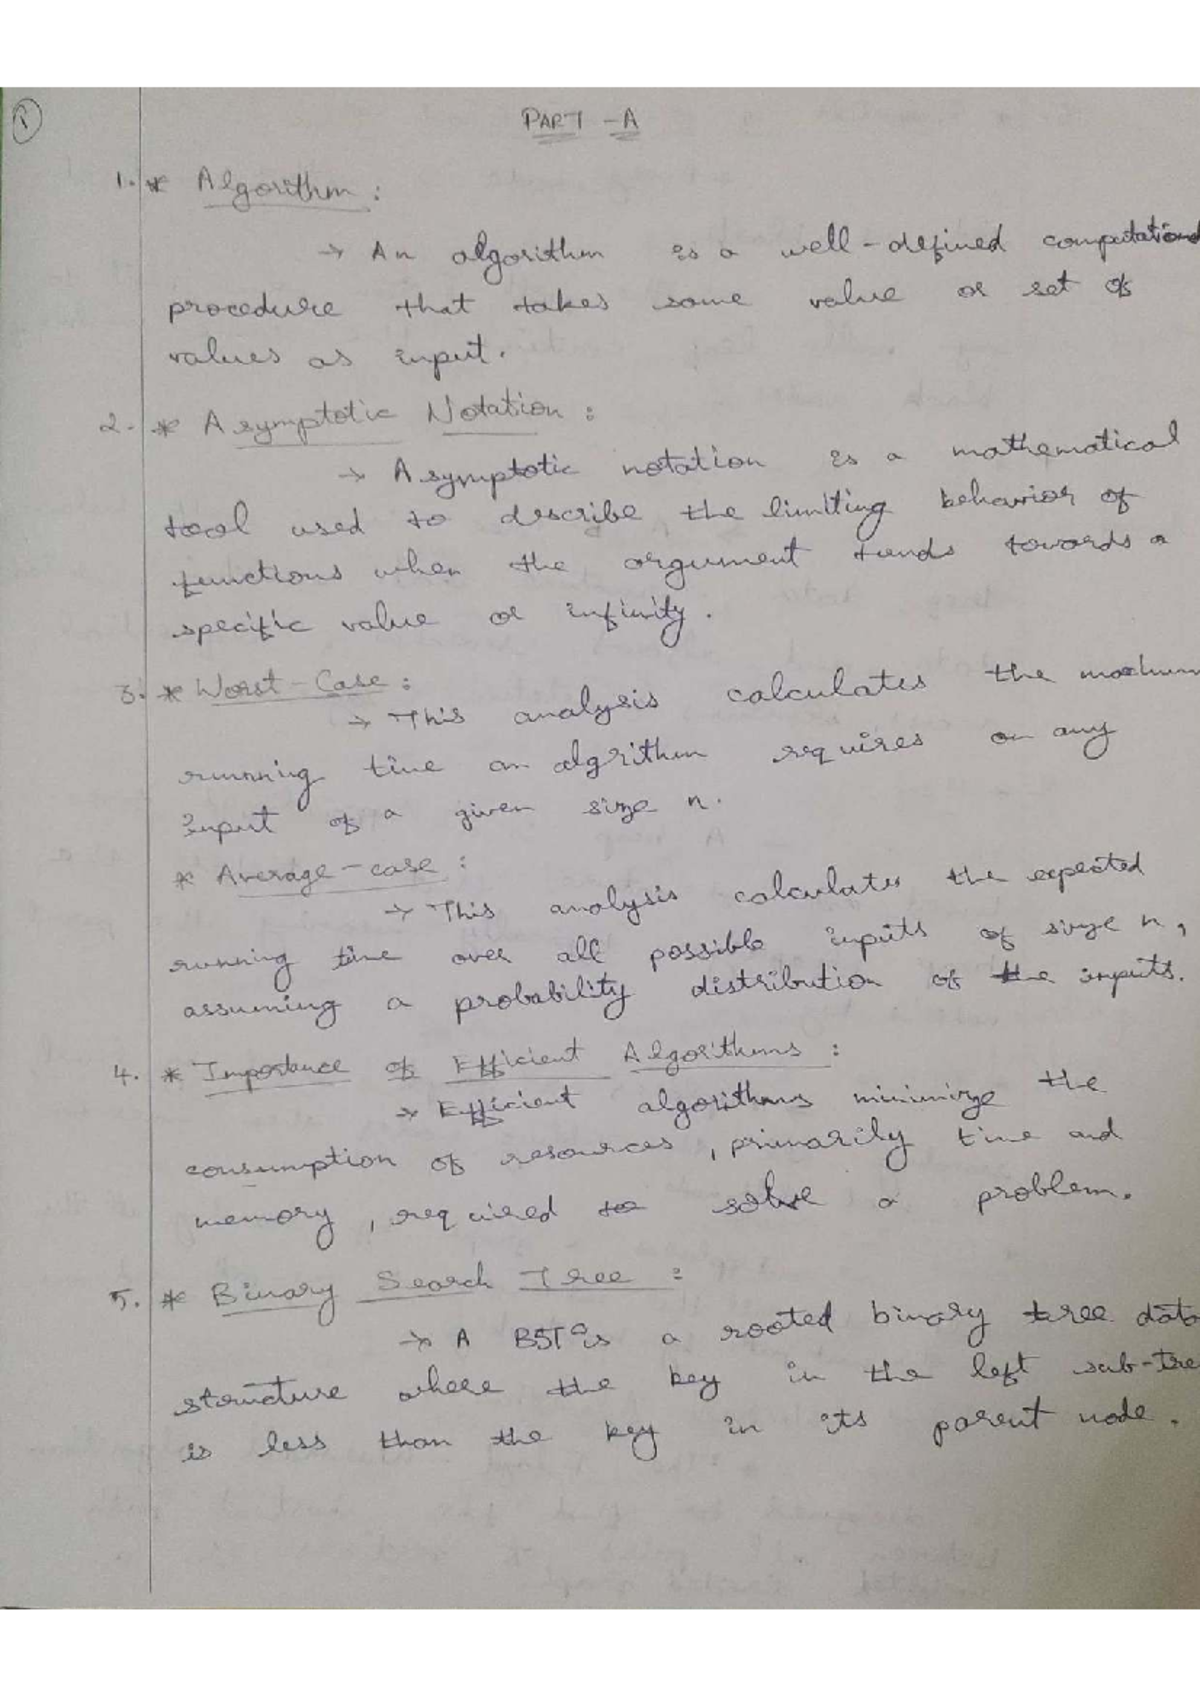 1
PART - A
1. * Algorithm :
→ An algorithm is a well-defined computational
procedure that takes some value or set of
values as input.
2. * Asymptotic Notation :
→ Asymptotic notation is a mathematical
tool used to describe the limiting behavior of
functions when the argument tends towards a
specific value or infinity.
3. * Worst-Case :
→ This analysis calculates the
running time an algrithm requires on any
input of a given size n.
* Average-case :
→ This analysis calculates the expected
running time over all possible inputs of size n,
assuming a probability distribution of the inputs.
4. * Importance of Efficient Algorithms :
→ Efficient algorithms minimize the
consumption of resources, primarily time and
memory, required to solve a problem.
5. * Binary Search Tree :
→ A BST is a rooted binary tree data
structure where the key in the left sub-tre
is less than the key in its parent node.